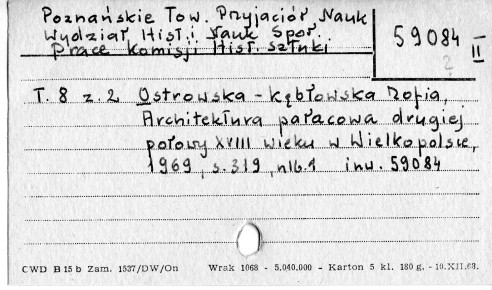 Poznańskie Tow. Przyjaciół Nauk
Wydział Hist. i Nauk Społ.
Prace Komisji Hist. Sztuki
59084
II
?
T. 8 z. 2 Ostrowska-Kębłowska Zofia,
Architektura pałacowa drugiej
połowy XVIII wieku w Wielkopolsce,
1969, s. 319, nlb. 1 inw. 59084
CWD B 15 b Zam. 1537/DW/On Wrak 1068 - 5.040.000 - Karton 5 kl. 180 g. - 10.XII.68.